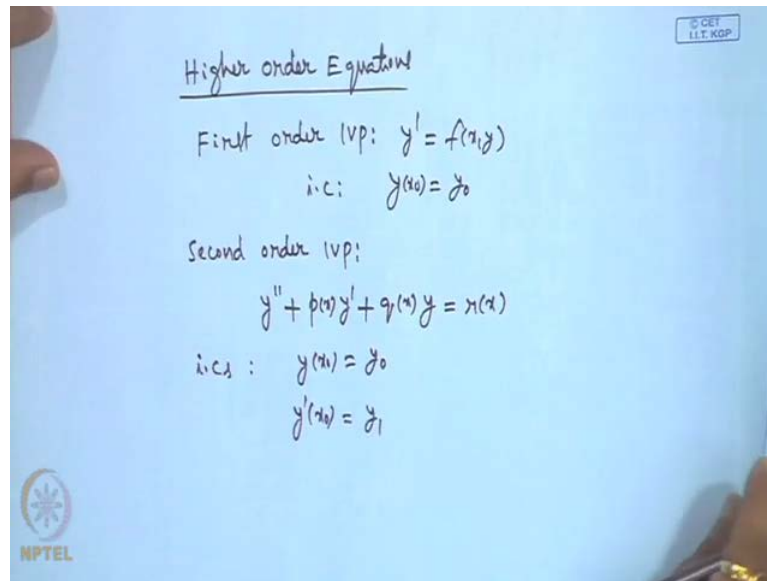 © CET
I.I.T. KGP
Higher order Equations
First order IVP: y' = f(x,y)
i.c: y(x0) = y0
Second order IVP:
y'' + p(x)y' + q(x)y = r(x)
i.cs : y(x0) = y0
y'(x0) = y1
NPTEL